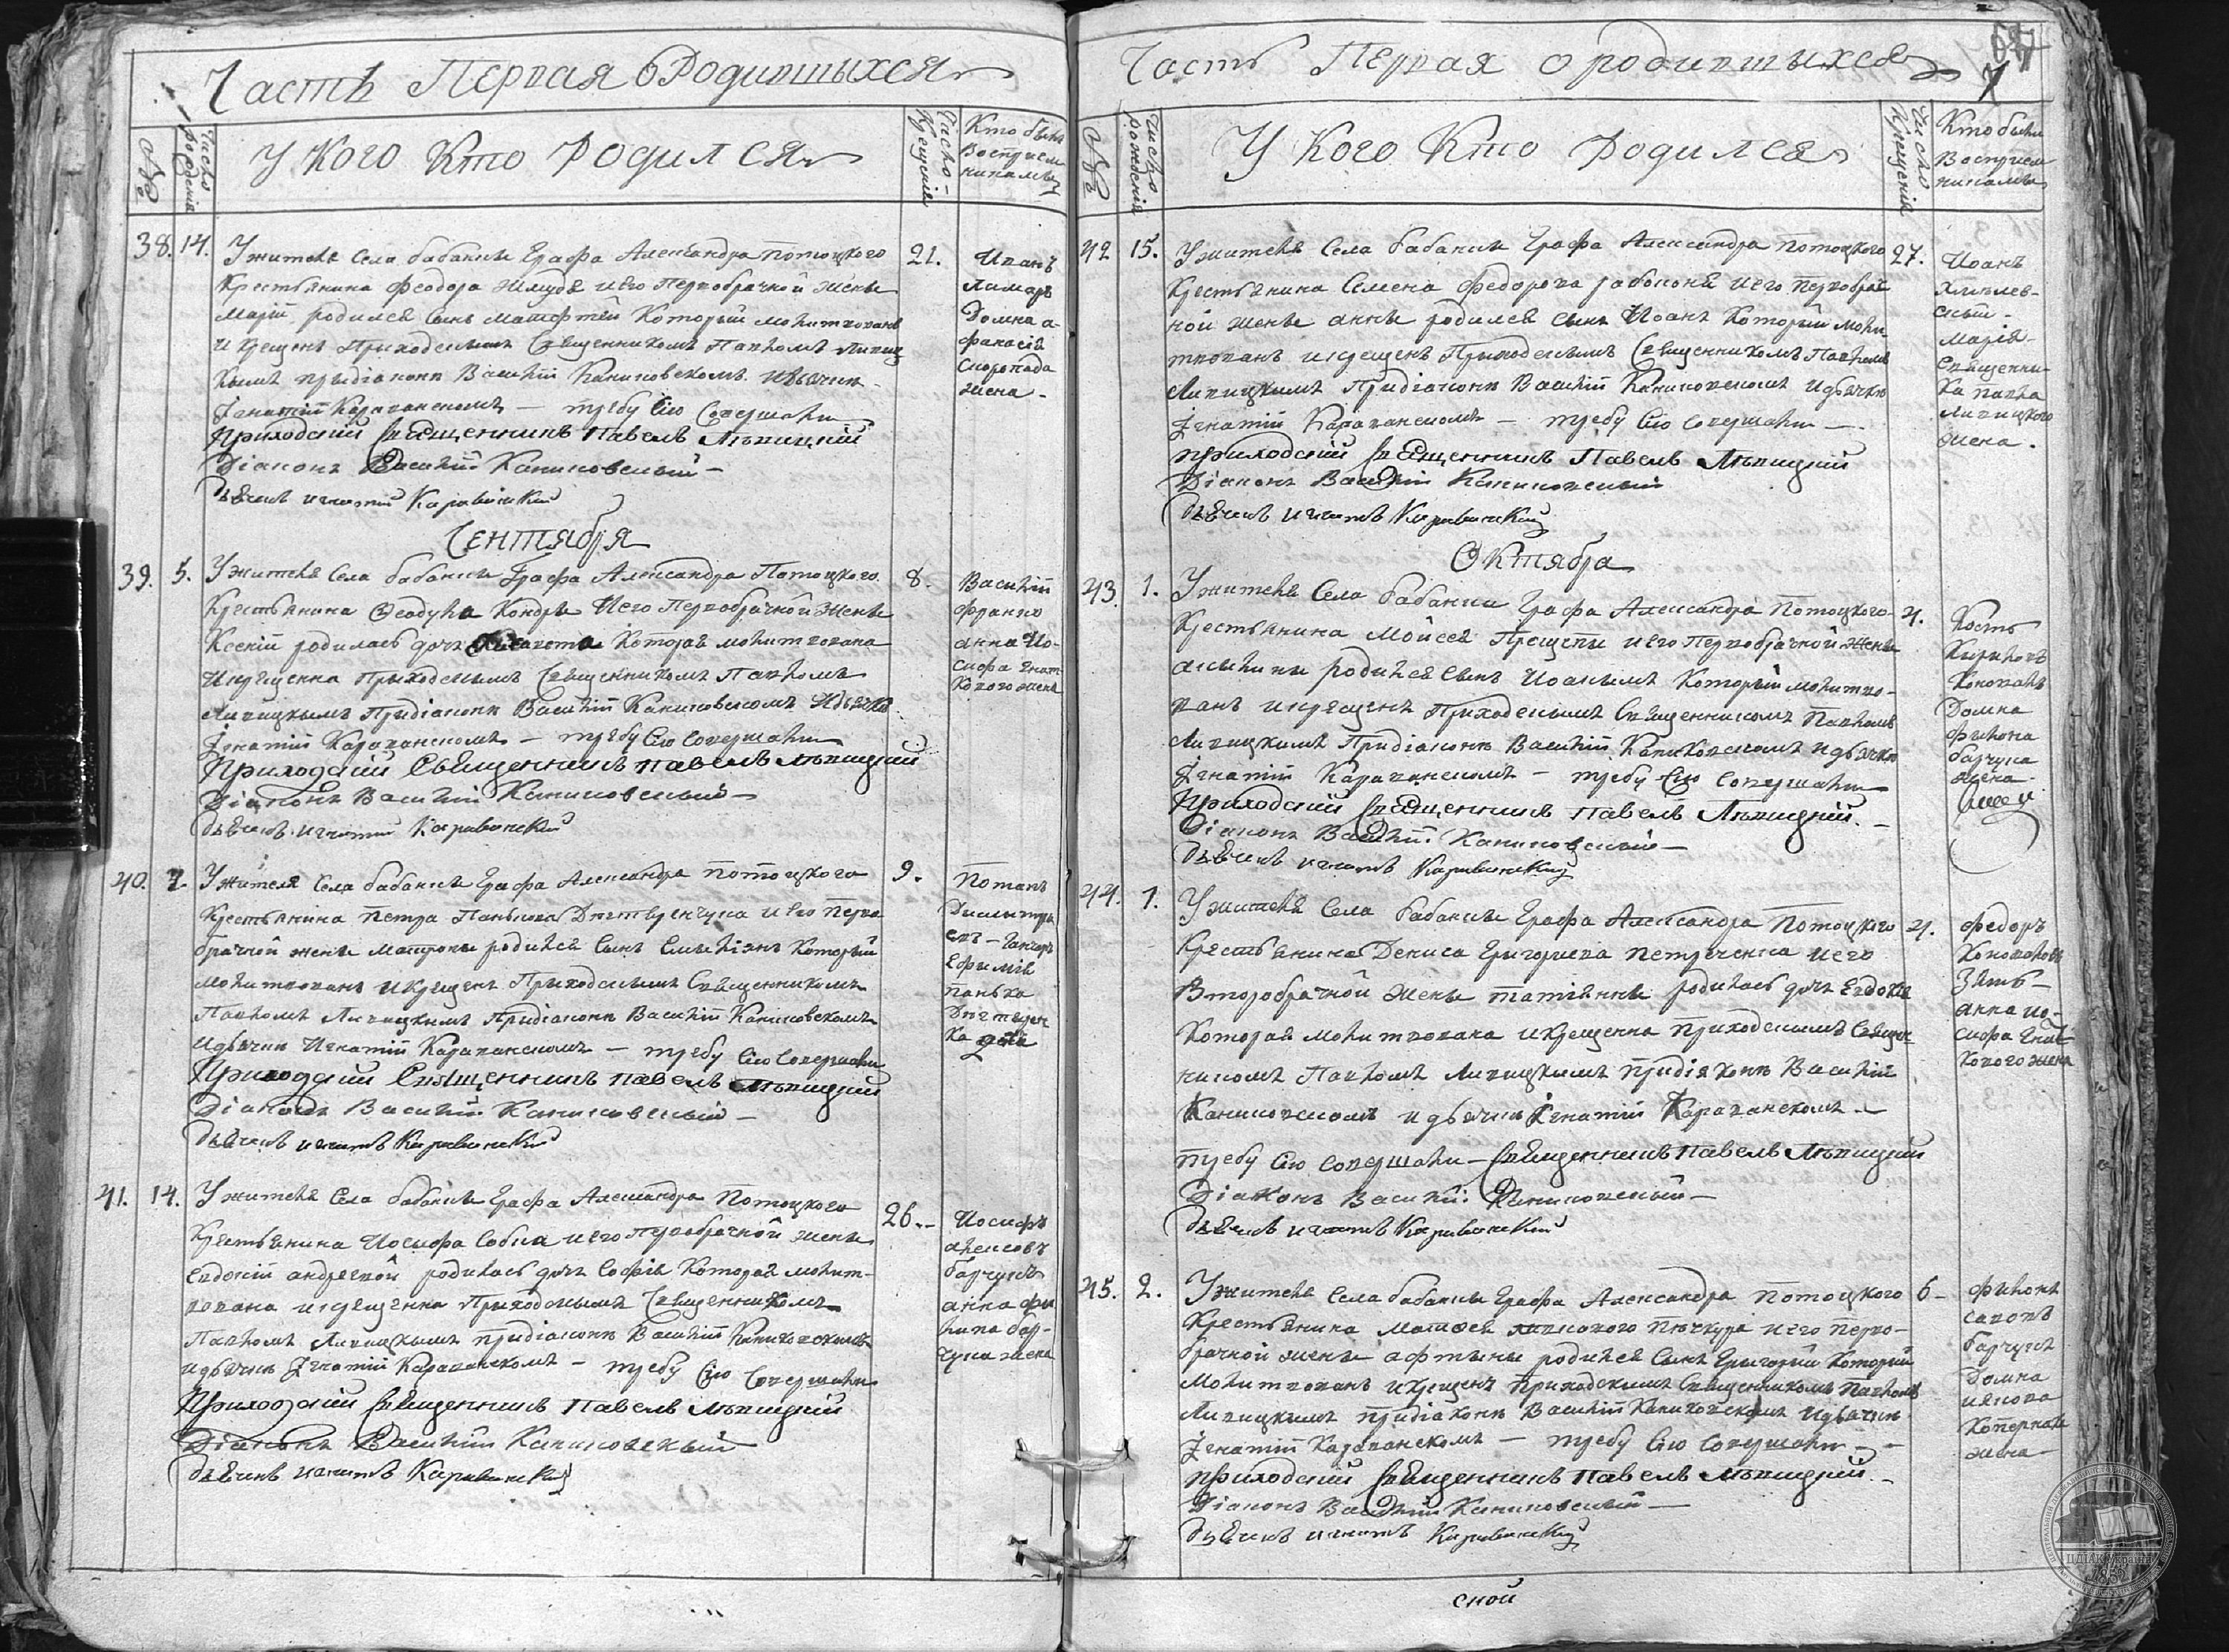 Часть Первая о Родившыхся
№
Число рождения
У Кого Кто Родился
Число Крещения
Кто были Восприемниками
38. 14.
У жителя Села бабанки Графа Александра Потоцкого
Крестьянина Феодора и его Первобрачной жены
Марiи родился Сынъ Который молитвованъ
и крещенъ Приходскимъ Священникомъ Павломъ Липиц
кымъ придiакони Василiй Каниковскомъ и дьячки
Iгнатiй Караванскомъ — требу сiю совершали
Приходскiй Священникъ Павелъ Липицкiй
Дiаконъ Василiй Каниковскый
дьячекъ игнатiй Караванскiй
21.
Иванъ
Лимарь
Домна а-
фанасiя
Скоропада
жена
Сентября
39. 5.
У жителя Села бабанки Графа Александра Потоцкого
Крестьянина Феодула Кондры и его Первобрачной жены
Ксенiи родилась дочь Которая молитвована
и крещенна Приходскимъ Священникомъ Павломъ
Липицкымъ Придiакони Василiй Каниковскомъ и дьячки
Iгнатiй Караванскомъ — требу сiю совершали
Приходскiй Священникъ Павелъ Липицкiй
Дiаконъ Василiй Каниковскый
дьячекъ игнатiй Караванскiй
8.
Василiй
Франко
анна Ио-
сифа Гнат
кового жена
40. 7.
У жителя Села бабанки Графа Александра Потоцкого
Крестьянина Петра Панькова и его Перво
брачной жены Матроны родился Сынъ Емилiянъ Который
молитвованъ и крещенъ Приходскимъ Священникомъ
Павломъ Липицкымъ Придiакони Василiй Каниковскомъ
и дьячки Игнатiй Караванскомъ — требу сiю совершали
Приходскiй Священникъ Павелъ Липицкiй
Дiаконъ Василiй Каниковскый
дьячекъ игнатiй Караванскiй
9.
Потапъ
Димитрi
евъ — Ганчаръ
Ефимiя
Панька
41. 14.
У жителя Села бабанки Графа Александра Потоцкого
Крестьянина Иосифа Собка и его Первобрачной жены
Евдокiи андреевой родилась дочь Софiя Которая молит-
вована и крещенна Приходскимъ Священникомъ
Павломъ Липицкымъ придiакони Василiй Каниковскомъ
и дьячки Iгнатiй Караванскомъ — требу сiю совершали
Приходскiй Священникъ Павелъ Липицкiй
Дiаконъ Василiй Каниковскый
дьячекъ игнатiй Караванскiй
26.
Иосифъ
алексовъ
барчукъ
анна фи
липа бар-
чука жена
Часть Первая о родившыхся
№
Число рождения
У Кого Кто Родился
Число Крещения
Кто были Восприемниками
42. 15.
У жителя Села бабанки Графа Александра Потоцкого
Крестьянина Семена Федорова и его Первобрач
ной жены анны родился Сынъ Иоанъ Который моли-
твованъ и крещенъ Приходскимъ Священникомъ Павломъ
Липицкымъ Придiакони Василiй Каниковскомъ и дьячки
Iгнатiй Караванскомъ — требу сiю совершали
Приходскiй Священникъ Павелъ Липицкiй
Дiаконъ Василiй Каниковскый
дьячекъ игнатъ Караванскiй
27.
Иоанъ
Хмелев-
скый
Марiя
Священни-
ка Павла
Липицкого
жена
Октября
43. 1.
У жителя Села бабанки Графа Александра Потоцкого
Крестьянина Мойсея Прещепы и его Первобрачной жены
акилины родился Сынъ Иоакымъ Который молитво-
ванъ и крещенъ Приходскимъ Священникомъ Павломъ
Липицкимъ Придiакони Василiй Каниковскомъ и дьячки
Iгнатiй Караванскомъ — требу сiю совершали
Приходскiй Священникъ Павелъ Липицкiй
Дiаконъ Василiй Каниковскый
дьячекъ игнатъ Караванскiй
4.
Кость
Кириловъ
Коноваль
Домна
филона
барчука
жена
44. 1.
У жителя Села бабанки Графа Александра Потоцкого
Крестьянина Дениса Григориева Петриченка и его
Второбрачной жены татiянны родилась дочь Евдокiя
Которая молитвована и крещенна Приходскимъ Священ-
никомъ Павломъ Липицкымъ придiякони Василiй
Каниковскомъ и дьячки Iгнатiй Караванскомъ
требу сiю совершали — Священникъ Павелъ Липицкiй
Дiаконъ Василiй Каниковскый
дьячекъ игнатъ Караванскiй
4.
Федоръ
Коноваловъ
Зять
анна ио-
сифа Гнат
кового жена
45. 2.
У жителя Села бабанки Графа Александра Потоцкого
Крестьянина Матфея и его Перво-
брачной жены родился Сынъ Григорiй Который
молитвованъ и крещенъ Приходскимъ Священникомъ Павломъ
Липицкымъ придiакони Василiй Каниковскомъ и дьячки
Iгнатiй Караванскомъ — требу сiю совершали
Приходскiй Священникъ Павелъ Липицкiй
Дiаконъ Василiй Каниковскый
дьячекъ игнатъ Караванскiй
6
филонъ
савовъ
барчукъ
Домна
жена
ской
ЦДIАК України
1852